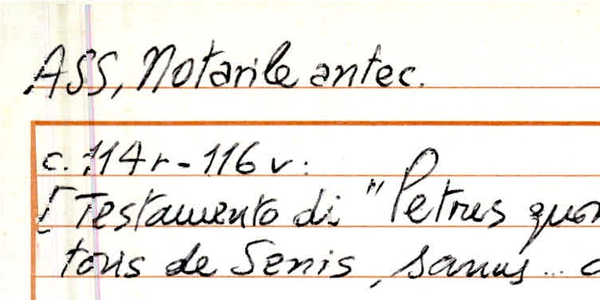 ASS, Notarile antec.
c. 114r - 116v:
[Testamento di "Petrus quon
toris de Senis, sanus...